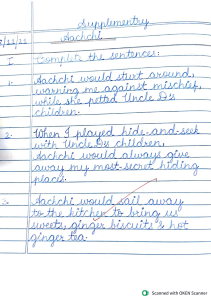 Supplementry
Aachchi
I Complete the sentences:
1. Aachchi would strut around,
warning me against mischief,
while she petted Uncle D's
children.
2. When I played hide-and-seek
with Uncle D's children,
Aachchi would always give
away my most-secret hiding
place.
3. Aachchi would sail away
to the kitchen to bring us
sweets, ginger biscuits & hot
ginger tea.
Scanned with OKEN Scanner